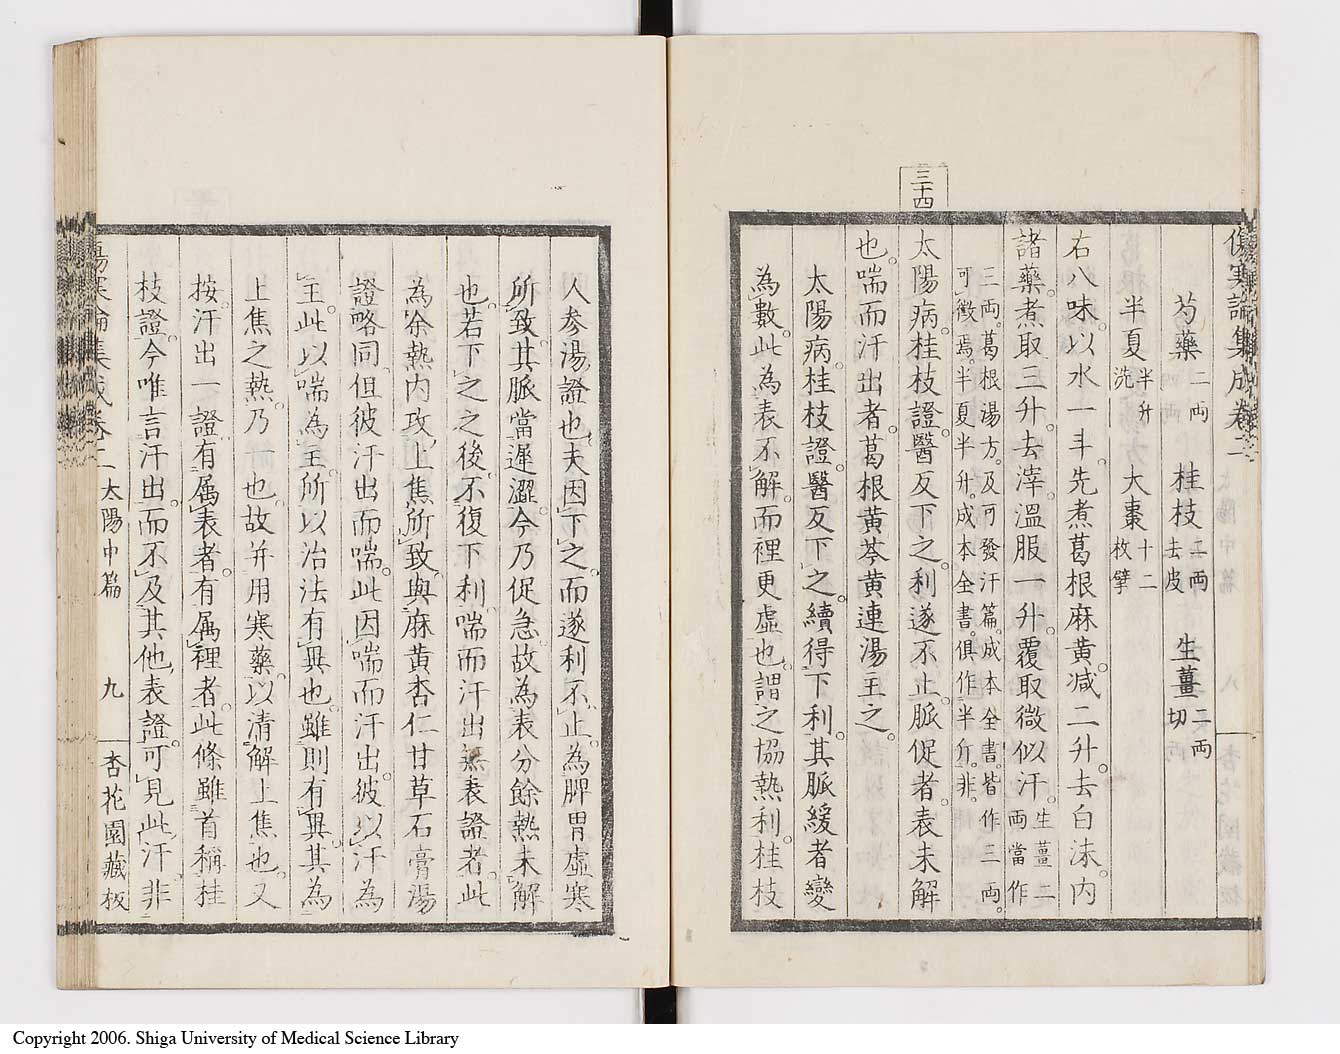 三十四
芍藥二両 桂枝二両去皮 生薑二両切
半夏半升洗 大棗十二枚擘
右八味。以水一斗先煮葛根麻黃。減二升。去白沫。內
諸藥。煮取三升。去滓。溫服一升。覆取微似汗。生薑二両當作
三両。葛根湯方。及可發汗篇。成本全書。皆作三両。可徵焉。半夏半升。成本全書。俱作半斤。非。
太陽病。桂枝證。醫反下之。利遂不止。脈促者。表未解
也。喘而汗出者。葛根黃芩黃連湯主之。
太陽病。桂枝證。醫反下之。續得下利。其脈緩者變
為數。此為表不解。而裡更虛也。謂之協熱利。桂枝
人参湯證也。夫因下之。而遂利不止。為脾胃虛寒
所致。其脈當遲澀。今乃促急。故為表分餘熱未解
也。若下之之後。不復下利。喘而汗出。無表證者。此
為余熱內攻。上焦所致。與麻黃杏仁甘草石膏湯
證略同。但彼汗出而喘。此因喘而汗出。彼以汗為
主。此以喘為主。所以治法有異也。雖則有異。其為
上焦之熱。乃一也。故并用寒藥。以清解上焦也。又
按。汗出一證。有属表者。有属裡者。此條雖首稱桂
枝證。今唯言汗出。而不及其他表證。可見此汗。非
傷寒論集成卷二 太陽中篇 九 杏花園藏板